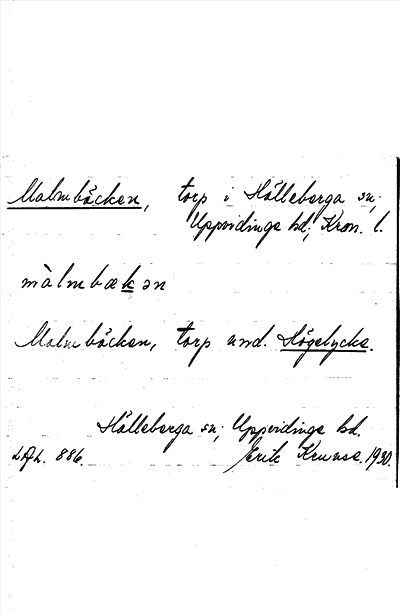 Malmbäcken, torp i Hälleberga sn;
Uppvidinge hd; Kron. l.
màlmbækən
Malmbäcken, torp und. Högelycke.
Hälleberga sn; Uppvidinge hd.
LAL. 886. Erik Kruuse. 1930.